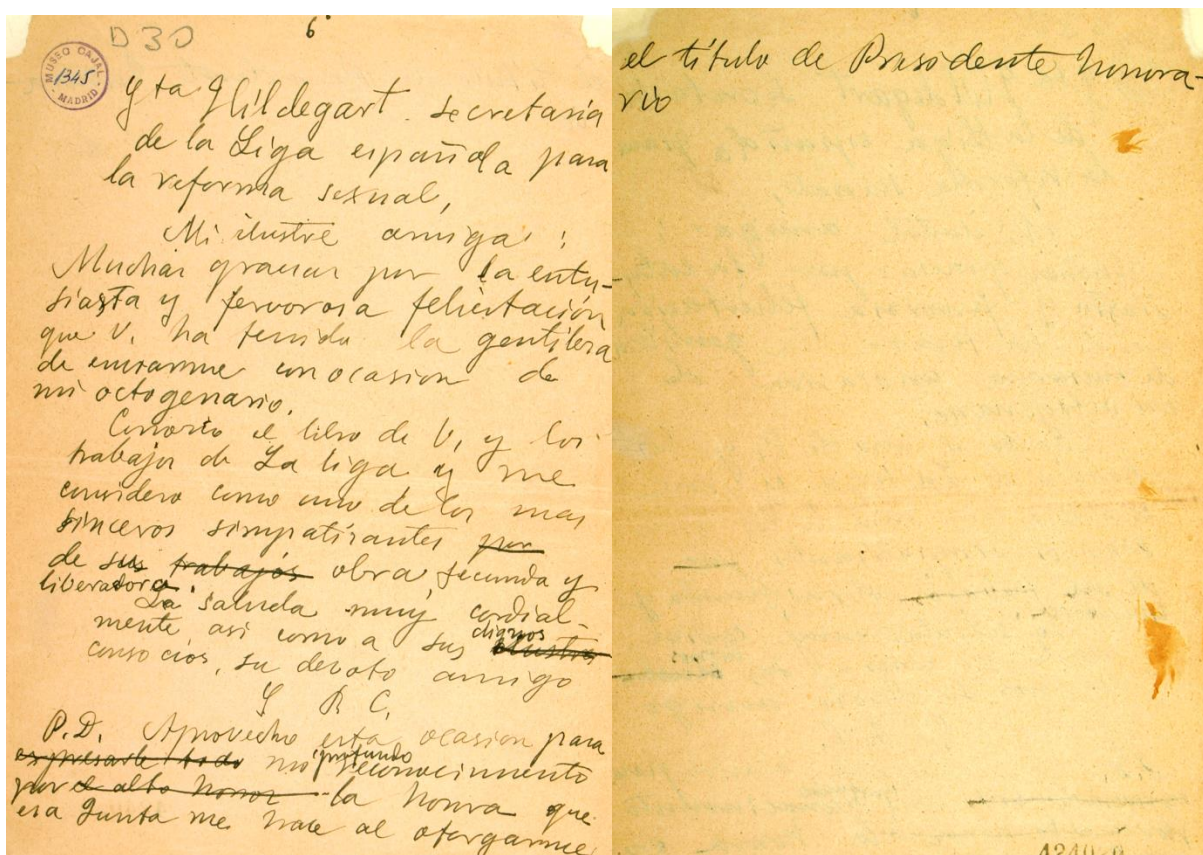 D30
6
MUSEO CAJAL
1345
MADRID
Yta Hildegart. secretaria
de la Liga española para
la reforma sexual,
Mi ilustre amiga:
Muchas gracias por la entu-
siasta y fervorosa felicitación
que V. ha tenido la gentileza
de enviarme con ocasion de
mi octogenario.
Conozco el libro de V, y los
trabajos de La liga y me
considero como uno de los mas
sinceros simpatizantes por
de sus trabajos obra fecunda y
liberadora.
La saluda muy cordial-
mente, asi como a sus dignos ilustres
consocios, su devoto amigo
S R C,
P.D. Aprovecho esta ocasion para
expresarle todo mi profundo reconocimiento
por el alto honor la honra que
esa Junta me hace al otorgarme
el título de Presidente honora-
rio